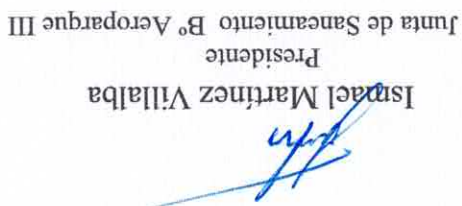 Ismael Martínez Villalba
Presidente
Junta de Saneamiento Bº Aeroparque III